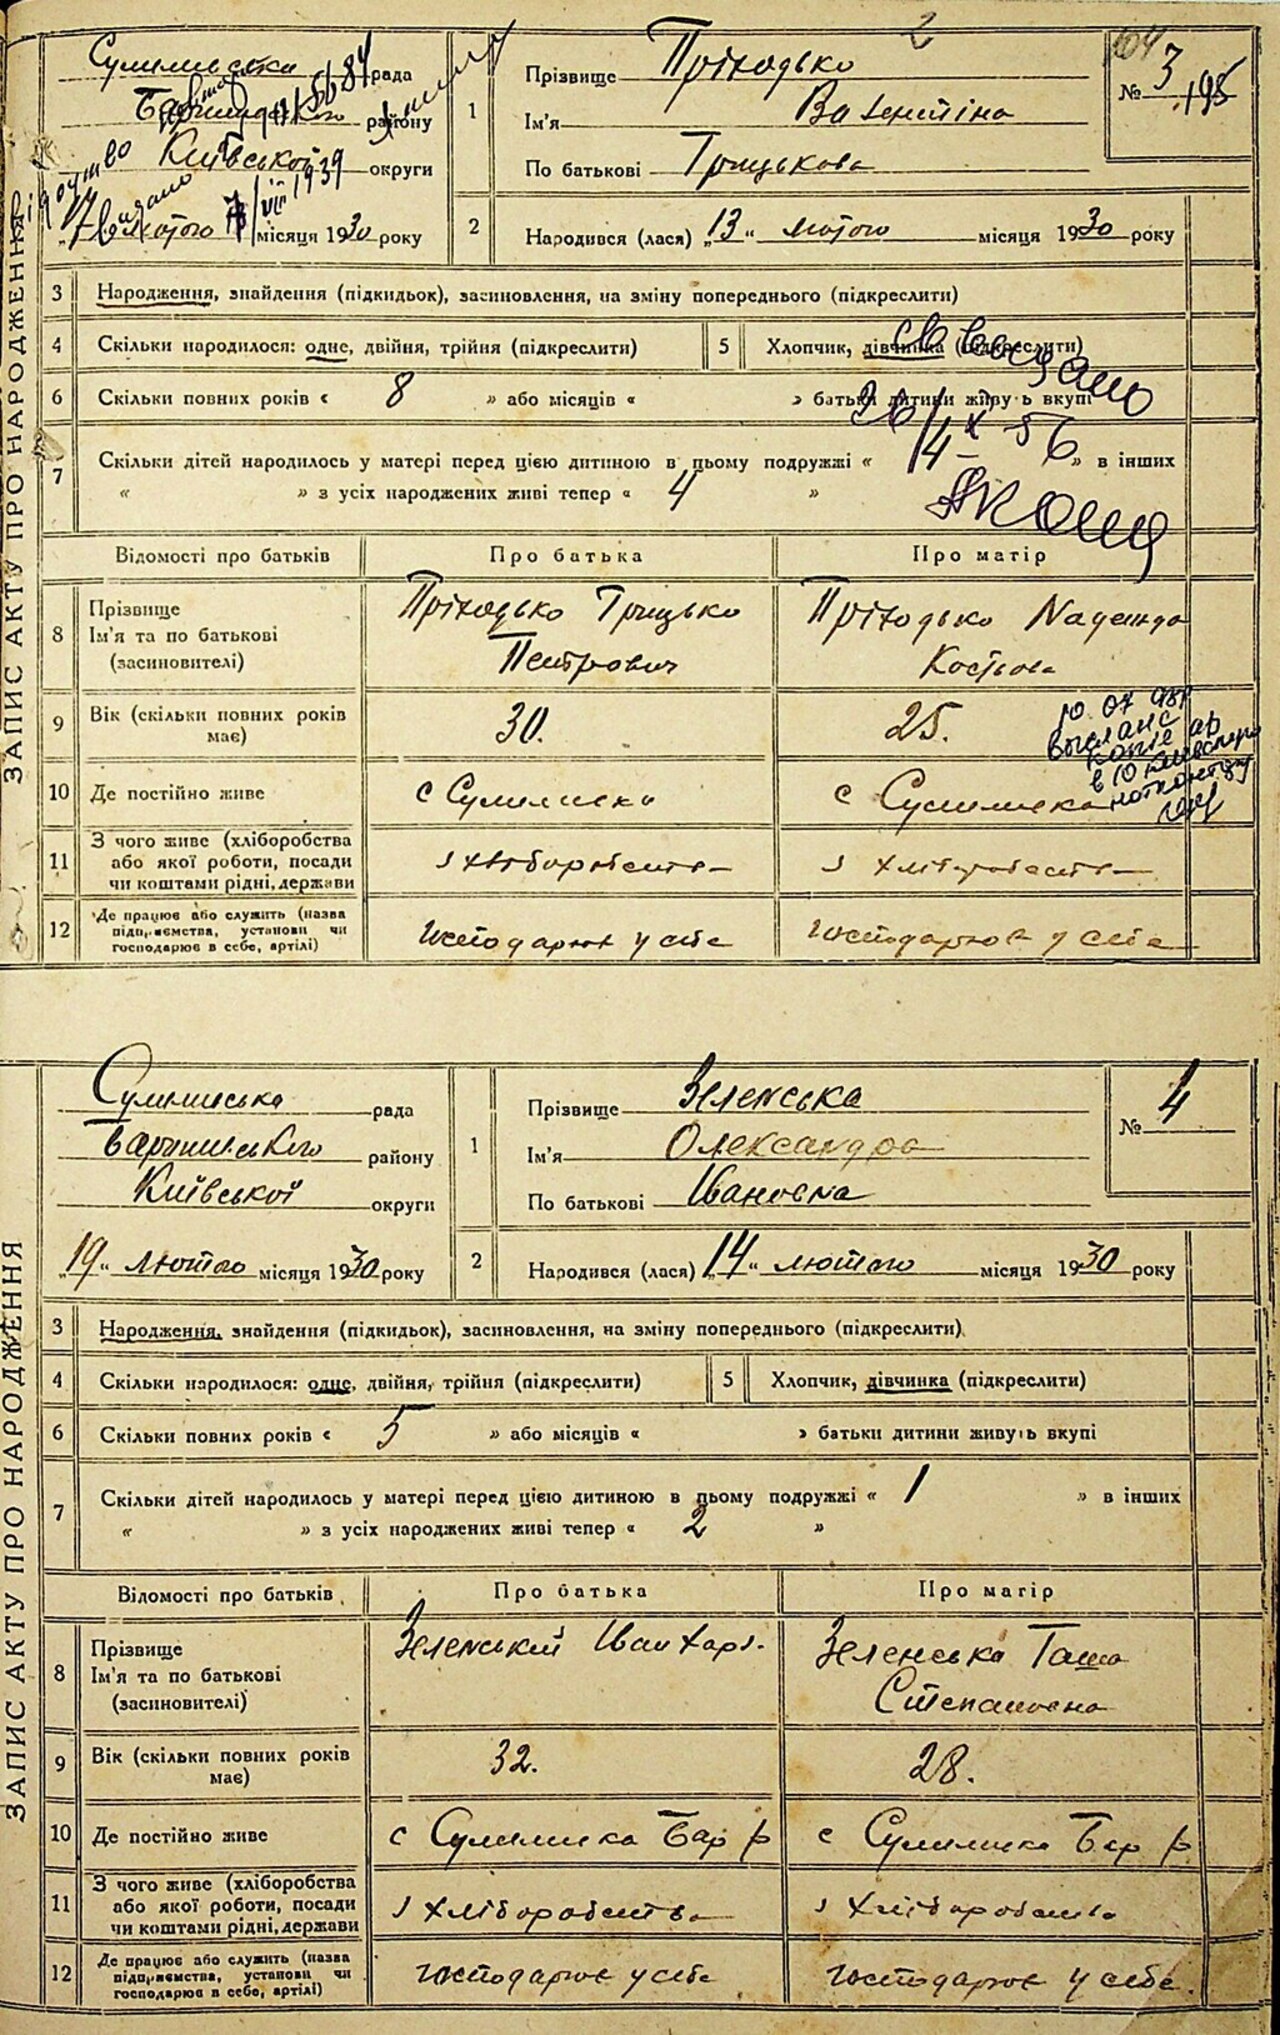 ЗАПИС АКТУ ПРО НАРОДЖЕННЯ
2
Сулимівська рада
району
Київської округи
"17" лютого місяця 1930 року
видано VIII 1939
1
Прізвище Пріходько
Ім'я Валентіна
По батькові Грицькова
№ 3
2
Народився (лася) „13" лютого місяця 1930 року
3 Народження, знайдення (підкидьок), засиновлення, на зміну попереднього (підкреслити)
4 Скільки народилося: одне, двійня, трійня (підкреслити)
5 Хлопчик, дівчинка (підкреслити)
6 Скільки повних років « 8 » або місяців « » батьки дитини живуть вкупі
св видано
7 Скільки дітей народилось у матері перед цією дитиною в цьому подружжі « 4 » в інших
« » з усіх народжених живі тепер « 4 »
Відомості про батьків Про батька Про матір
8 Прізвище Ім'я та по батькові (засиновителі)
Пріходько Грицько Пентрович
Пріходько Надежда Костьова
9 Вік (скільки повних років має) 30. 25.
10 07
выслано
10 Де постійно живе с Сулимівка с Сулимівка
11 З чого живе (хліборобства або якої роботи, посади чи коштами рідні, держави
з хліборобства з хліборобства
12 Де працює або служить (назва підприємства, установи чи господарює в себе, артілі)
господарює у себе господарює у себе
ЗАПИС АКТУ ПРО НАРОДЖЕННЯ
Сулимівська рада
району
Київської округи
„19" лютого місяця 1930 року
1
Прізвище Зеленська
Ім'я Олександра
По батькові Івановна
№ 4
2
Народився (лася) „14" лютого місяця 1930 року
3 Народження, знайдення (підкидьок), засиновлення, на зміну попереднього (підкреслити)
4 Скільки народилося: одне, двійня, трійня (підкреслити)
5 Хлопчик, дівчинка (підкреслити)
6 Скільки повних років « 5 » або місяців « » батьки дитини живуть вкупі
7 Скільки дітей народилось у матері перед цією дитиною в цьому подружжі « 1 » в інших
« » з усіх народжених живі тепер « 2 »
Відомості про батьків Про батька Про матір
8 Прізвище Ім'я та по батькові (засиновителі)
Зеленський Іван
Зеленська Степановна
9 Вік (скільки повних років має) 32. 28.
10 Де постійно живе с Сулимівка Бар р с Сулимівка Бар р
11 З чого живе (хліборобства або якої роботи, посади чи коштами рідні, держави
з хліборобства з хліборобства
12 Де працює або служить (назва підприємства, установи чи господарює в себе, артілі)
господарює у себе господарює у себе.